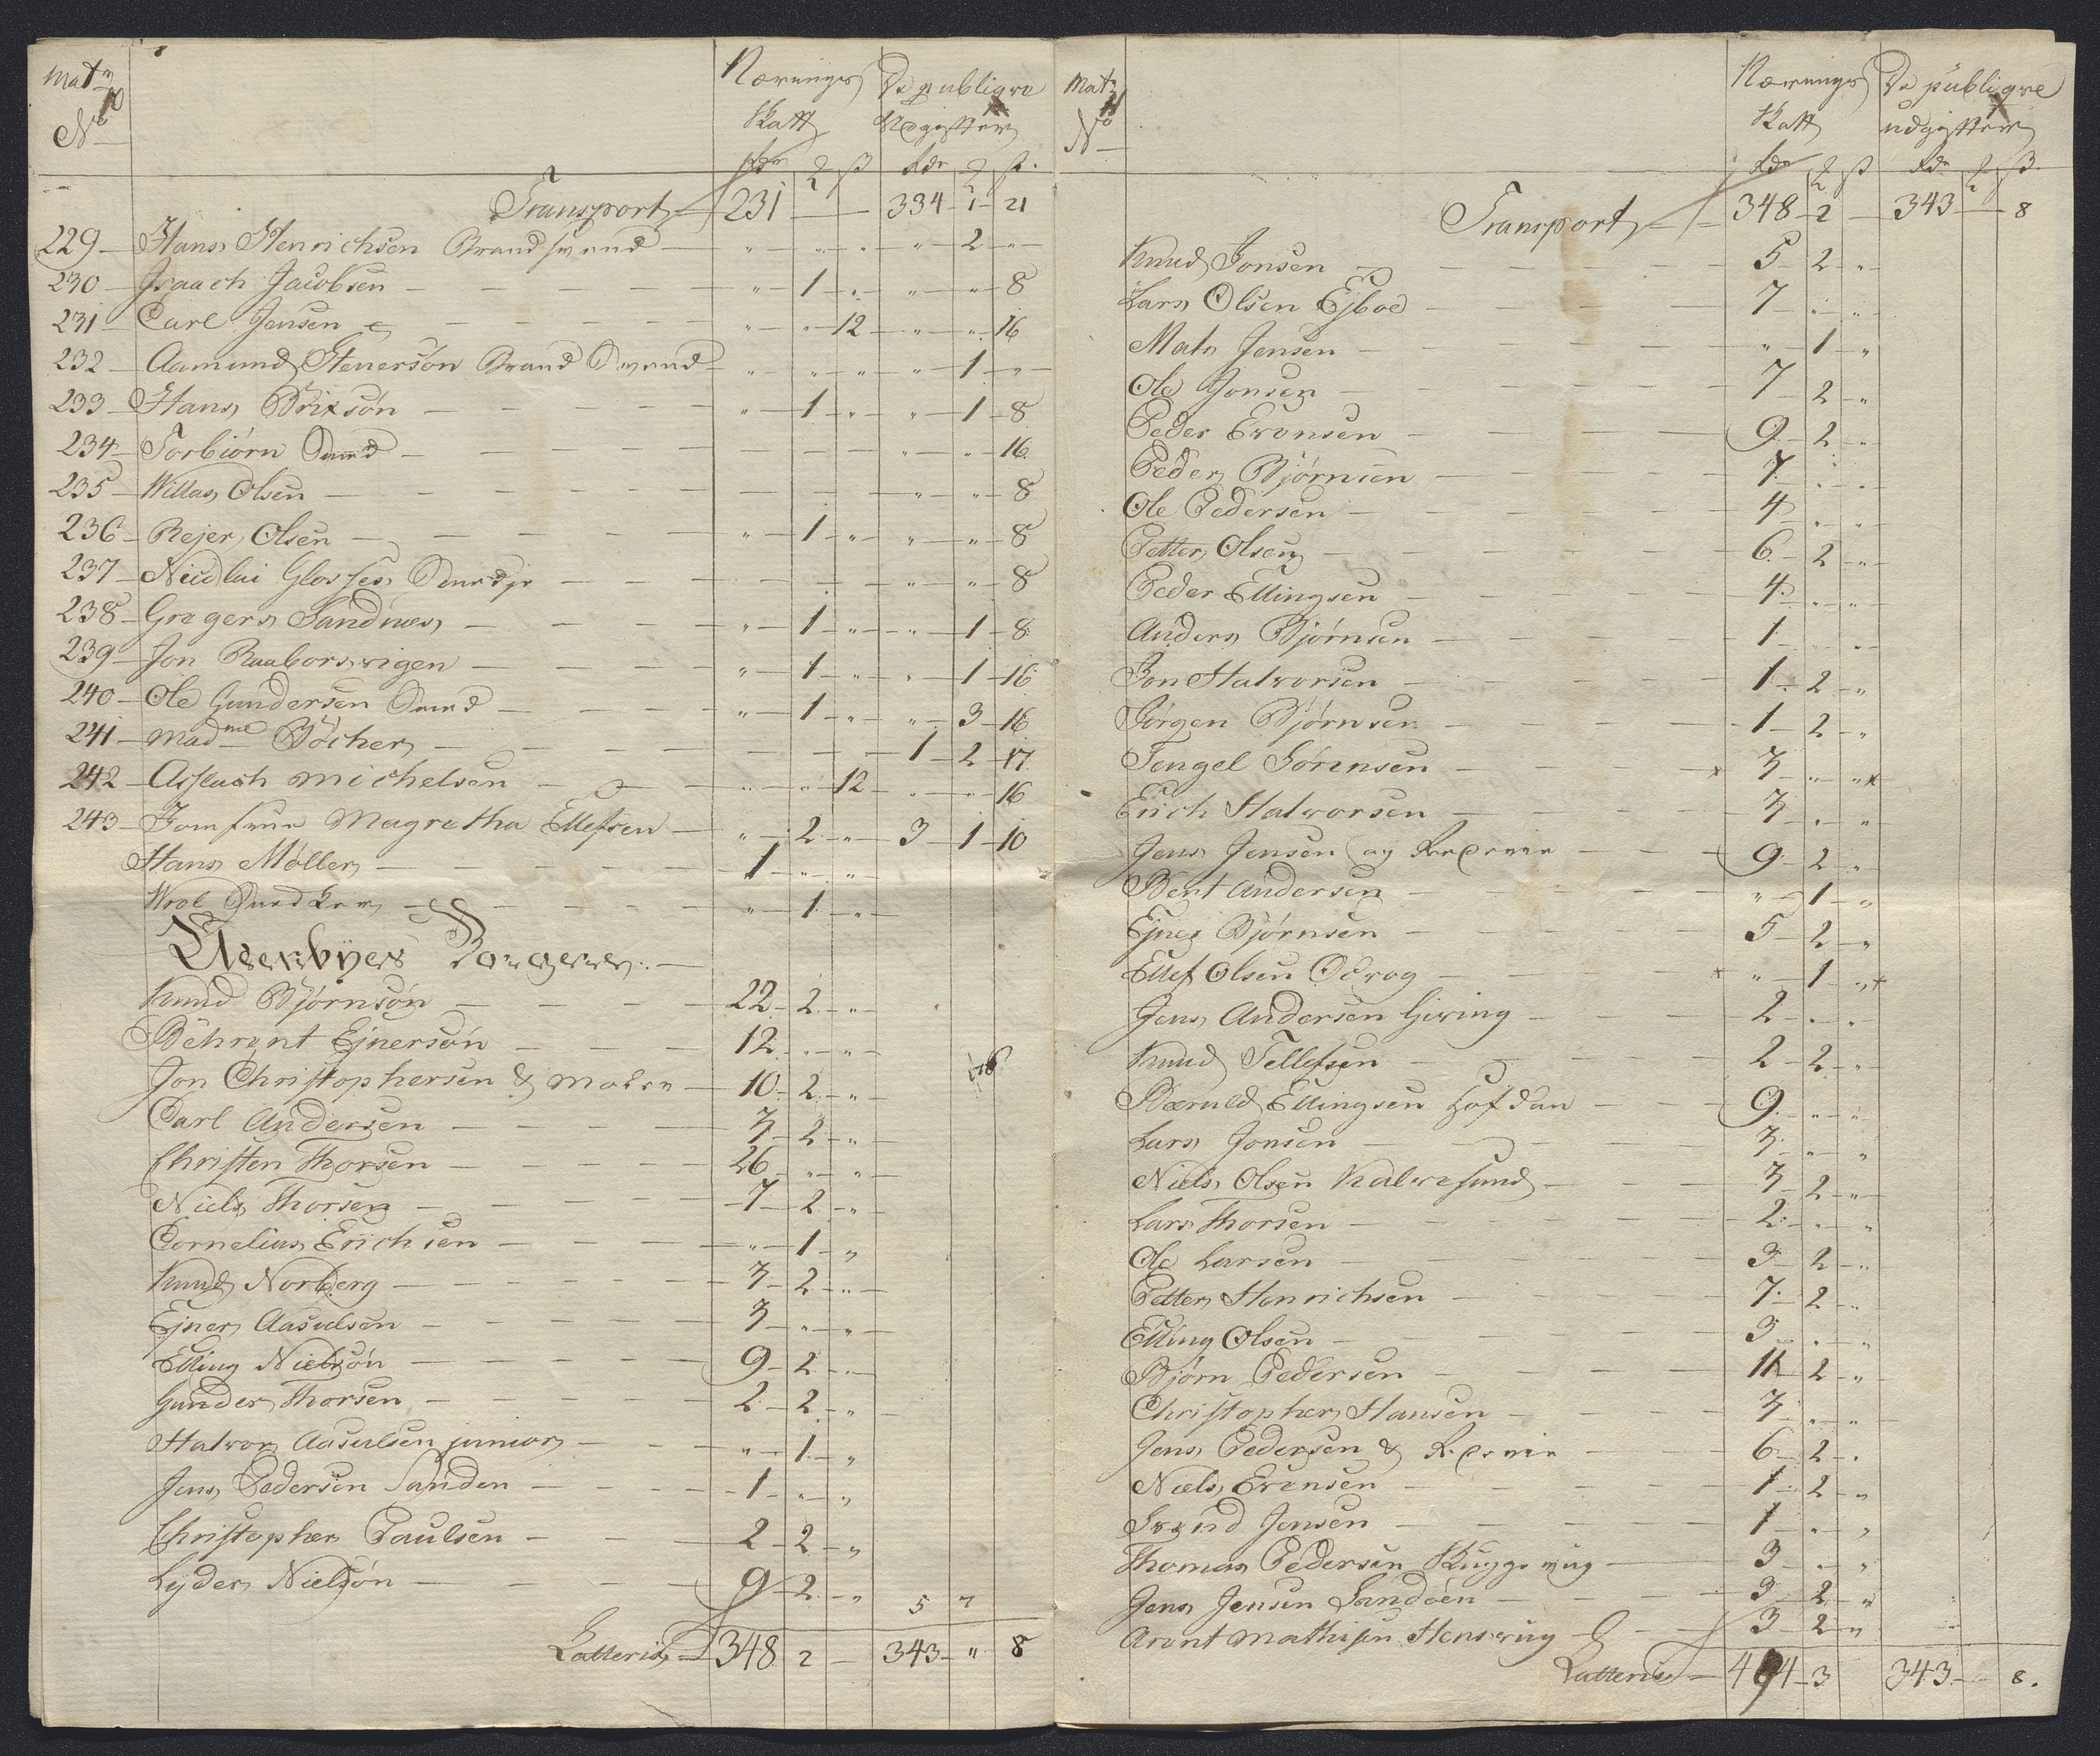 Mat:
No
Nærings Skatt
De publiqve Udgifter
rdr ß rdr ß
Transport 231 — — 334 1 21
229 Hans Henrichsen Brandsvend " " " " 2 "
230 Isaach Jacobsen " 1 " " " 8
231 Carl Jensen " " 12 " " 16
232 Aamund Stenersøn Brand Svend " " " " 1 "
233 Hans Brixsøn " 1 " " 1 8
234 Torbiørn " " 16
235 Willas Olsen " " 8
236 Rejer Olsen " 1 " " " 8
237 Nicolai " " 8
238 Gregers Sandnes " 1 " " 1 8
239 Jon Raaborsvigen " 1 " " 1 16
240 Ole Gundersen " 1 " " 3 16
241 Madme Böcher 1 2 17
242 Asslach Michelsen " " 12 " " 16
243 Jomfrue Magretha Ellefsen " 2 " 3 1 10
Hans Møller 1 " "
" 1 "
Borgere
Knud Bjørnsøn 22 2 "
Behrent Ejnersøn 12 " "
Jon Christophersen & 10 2 "
Carl Andersen 3 2 "
Christen Thorsen 26 " "
Niels Thorsen 7 2 "
Cornelius Erichsen " 1 "
Knud Norberg 3 2 "
Ejner Aasulsen 3 " "
Elling Nielsøn 9 2 "
Gunder Thorsen 2 2 "
Halvor Aasulsen junior " 1 "
Jens Pedersen Sanden 1 " "
Christopher Paulsen 2 2 "
Lyder Nielsøn 9 2 "
5 7
Latteris 348 2 — 343 " 8
Mat:
No
Nærings Skatt
De publiqve udgifter
rdr ß rdr ß
Transport 348 2 — 343 — 8
Knud Jonsen 5 2 "
Lars Olsen Ejboe 7 " "
Mats Jensen " 1 "
Ole Jonsen 7 2 "
Peder Evensen 9 2 "
Peder Bjørnsen 7 " "
Ole Pedersen 4 " "
Petter Olsen 6 2 "
Peder Ellingsen 4 " "
Anders Bjørnsen 1 " "
Jon Halvorsen 1 2 "
Jørgen Bjørnsen 1 2 "
Tengel Sørensen 3 " "
Erich Halvorsen 3 " "
Jens Jensen og 9 2 "
Bent Andersen " 1 "
Ejner Bjørnsen 5 2 "
Ellef Olsen " 1 "
Jens Andersen Giving 2 " "
Knud Tellefsen 2 2 "
Ellingsen 9 " "
Lars Jonsen 3 " "
Niels Olsen Kalvesund 3 2 "
Lars Thorsen 2 " "
Ole Larsen 3 2 "
Petter Henrichsen 7 2 "
Elling Olsen 3 " "
Bjørn Pedersen 11 2 "
Christopher Hansen 3 " "
Jens Pedersen & 6 2 "
Niels Evensen 1 2 "
Svend Jensen 1 " "
Thomas Pedersen Skuggevig 3 " "
Jens Jensen Sandøen 3 2 "
Arent Mathisen Hensvig 3 2 "
Latteris 3 343 — 8.